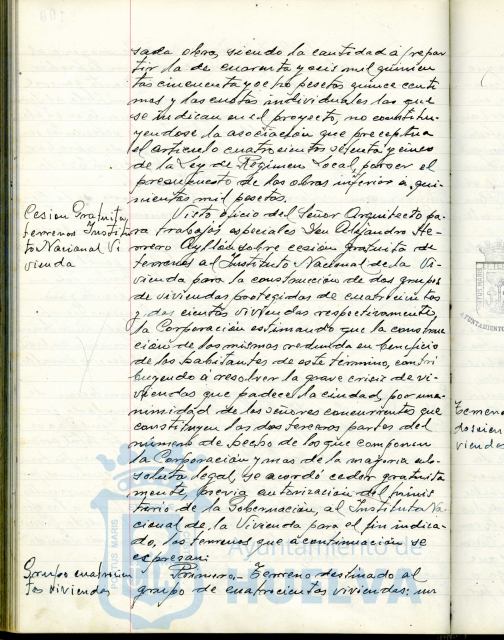 sada obra, siendo la cantidad a repar
tir la de cuarenta y seis mil quinien
tas cincuenta y ocho pesetas quince centi
mos y las cuotas individuales las que
se indican en el proyecto, no constitu-
yendose la asociación que preceptua
el articulo cuatrocientos setenta y cinco
de la Ley de Regimen Local, por ser el
presupuesto de las obras inferior a qui-
nientas mil pesetas.
Cesion Gratuita
terrenos Institu
to Nacional Vi
vienda
Visto oficio del Señor Arquitecto pa
ra trabajos especiales Don Alejandro He-
rrero Ayllón sobre cesión gratuita de
terrenos al Instituto Nacional de la Vi-
vienda para la construcción de dos grupos
de viviendas protegidas de cuatrocientas
y doscientas viviendas respectivamente,
la Corporación estimando que la construc
ción de las mismas redunda en beneficio
de los habitantes de este término, contri
buyendo a resolver la grave crisis de vi-
viendas que padece la ciudad, por una-
nimidad de los señores concurrentes que
constituyen las dos terceras partes del
número de hecho de los que componen
la Corporación y mas de la mayoria ab-
soluta legal, se acordó ceder gratuita
mente, previa autorización del Minis
terio de la Gobernación, al Instituto Na
cional de la Vivienda para el fin indica-
do, los terrenos que a continuación se
expresan:
Grupo cuatrocien
tas viviendas
Primero.- Terreno destinado al
grupo de cuatrocientas viviendas: un
Terreno
doscien
viendas
AYUNTAMIENTO
PORTUS MARIS
Ayuntamiento de
HUELVA